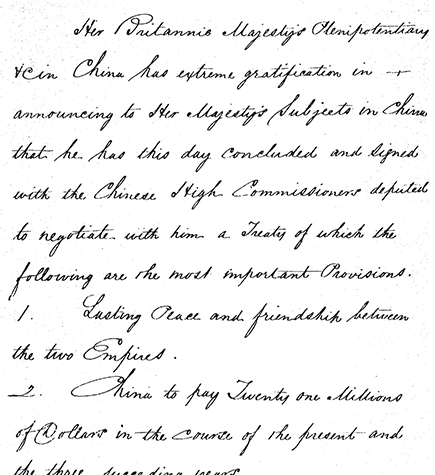 Her Britannic Majesty's Plenipotentiary
&c in China has extreme gratification in
announcing to Her Majesty's Subjects in China
that he has this day concluded and signed
with the Chinese High Commissioners deputed
to negotiate with him a Treaty of which the
following are the most important Provisions.
1. Lasting Peace and friendship between
the two Empires.
2. China to pay Twenty one Millions
of Dollars in the course of the present and
the three succeeding years